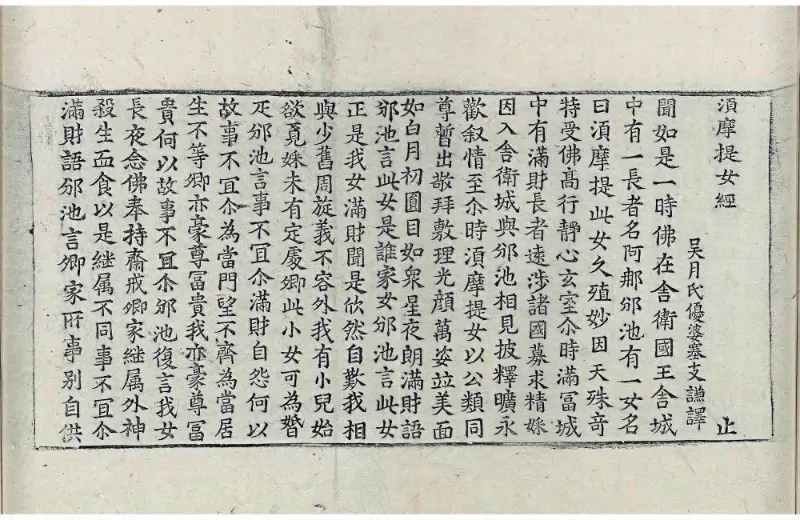 須摩提女經　止
吳月氏優婆塞支謙譯
聞如是一時佛在舍衛國王舍城
中有一長者名阿那邠池有一女名
曰須摩提此女久殖妙因天殊竒
特受佛髙行静心玄室尒時滿冨城
中有滿財長者遠涉諸國募求精婇
因入舍衛城與邠池相見披釋曠永
歡叙情至尒時須摩提女以公類同
尊暫出敬拜敷理光顔萬姿竝美面
如白月初圓目如衆星夜朗滿財語
邠池言此女是誰家女邠池言此女
正是我女滿財聞是欣然自歎我相
與少舊周旋義不容外我有小兒始
欲覔婇未有定處卿此小女可為㛰
疋邠池言事不冝尒滿財自怨何以
故事不冝尒為當門望不齊為當居
生不等卿亦豪尊冨貴我亦豪尊冨
貴何以故事不冝尒邠池復言我女
長夜念佛奉持齋戒卿家継属外神
殺生血食以是継属不同事不冝尒
滿財語邠池言卿家所事別自供